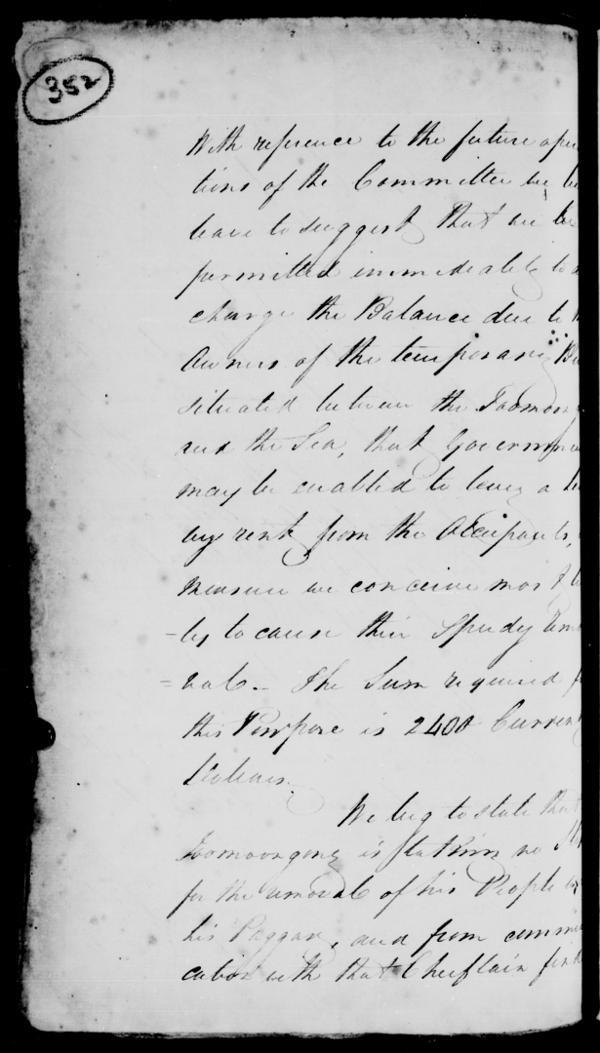 352
With reference to the future oper
tions of the Committee we be
leave to suggest that we be
permitted immediately to
charge the Balance due to
Owners of the temporary B
situated between the Toomoon
and the Sea, that Governme
may be enabled to levy a
rent from the Occupants,
measure we conceive most
-ly to cause their speedy rem
=val. - The Sum required f
this Purpose is 2400 Curren
We beg to state that
Toomoongong is taking no
for the removal of his People
his Paggar, and from commu
cation with that Chieftain find